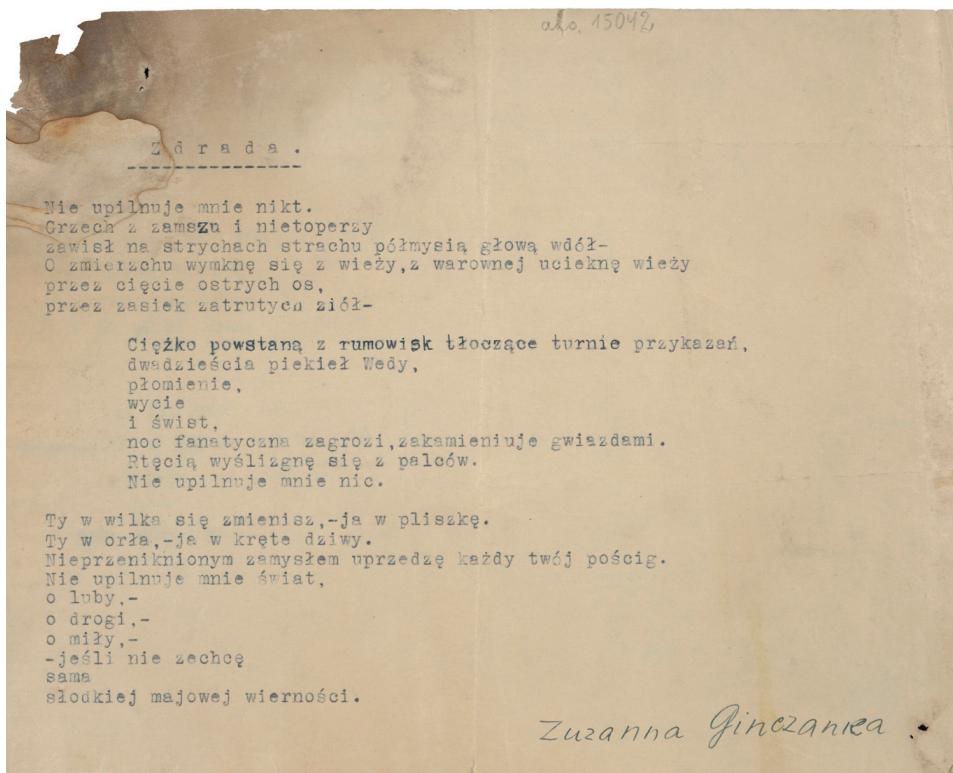 akc. 15042
Zdrada.
Nie upilnuje mnie nikt.
Grzech z zamszu i nietoperzy
zawisł na strychach strachu półmysią głową wdół-
O zmierzchu wymknę się z wieży,z warownej ucieknę wieży
przez cięcie ostrych os,
przez zasiek zatrutych ziół-
Ciężko powstaną z rumowisk tłoczące turnie przykazań,
dwadzieścia piekieł Wedy,
płomienie,
wycie
i świst,
noc fanatyczna zagrozi,zakamieniuje gwiazdami.
Rtęcią wyślizgnę się z palców.
Nie upilnuje mnie nic.
Ty w wilka się zmienisz,-ja w pliszkę.
Ty w orła,-ja w kręte dziwy.
Nieprzeniknionym zamysłem uprzedzę każdy twój pościg.
Nie upilnuje mnie świat,
o luby,-
o drogi,-
o miły,-
-jeśli nie zechcę
sama
słodkiej majowej wierności.
Zuzanna Ginczanka